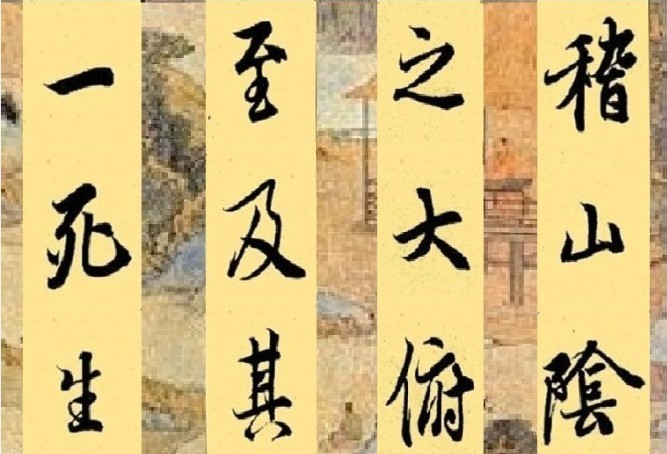 稽山陰
之大俯
至及其
一死生